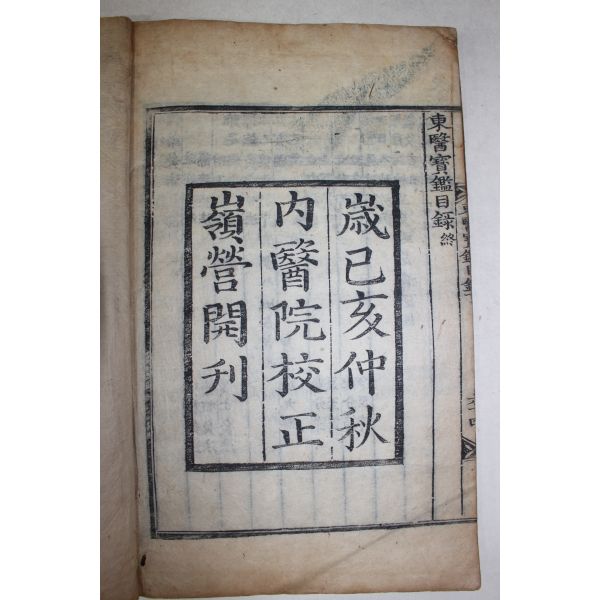 東醫寶鑑目録終
歳己亥仲秋
內醫院校正
嶺營開刋